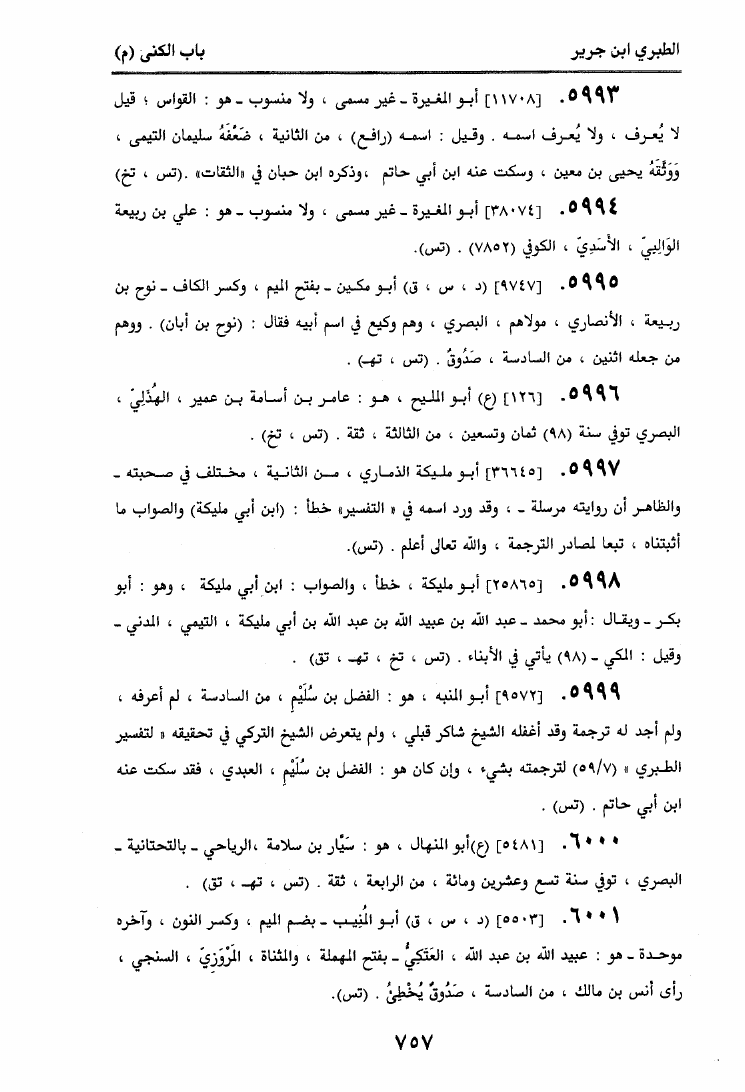 الطبري ابن جرير
باب الكنى (م)
٥٩٩٣. [١١٧٠٨] أبو المغيرة ـ غير مسمى ، ولا منسوب ـ هو : القواس ؛ قيل
لا يُعرف ، ولا يُعرف اسمه . وقيل : اسمه (رافع) ، من الثانية ، ضَعَّفَهُ سليمان التيمى ،
وَوَثَّقَهُ يحيى بن معين ، وسكت عنه ابن أبي حاتم ،وذكره ابن حبان في «الثقات» .(تس ، تخ)
٥٩٩٤. [٣٨٠٧٤] أبو المغيرة ـ غير مسمى ، ولا منسوب ـ هو : علي بن ربيعة
الوَالِبيّ ، الأَسَدِيّ ، الكوفي (٧٨٥٢) . (تس).
٥٩٩٥. [٩٧٤٧] (د ، س ، ق) أبو مكين ـ بفتح الميم ، وكسر الكاف ـ نوح بن
ربيعة ، الأنصاري ، مولاهم ، البصري ، وهم وكيع في اسم أبيه فقال : (نوح بن أبان) . ووهم
من جعله اثنين ، من السادسة ، صَدُوقٌ . (تس ، تهـ) .
٥٩٩٦. [١٢٦] (ع) أبو المليح ، هو : عامر بن أسامة بن عمير ، الهُذَلِيّ ،
البصري توفي سنة (٩٨) ثمان وتسعين ، من الثالثة ، ثقة . (تس ، تخ) .
٥٩٩٧. [٣٦٦٤٥] أبو مليكة الذماري ، من الثانية ، مختلف في صحبته ـ
والظاهر أن روايته مرسلة ـ ، وقد ورد اسمه في « التفسير» خطأ : (ابن أبي مليكة) والصواب ما
أثبتناه ، تبعا لمصادر الترجمة ، والله تعالى أعلم . (تس).
٥٩٩٨. [٢٥٨٦٥] أبو مليكة ، خطأ ، والصواب : ابن أبي مليكة ، وهو : أبو
بكر ـ ويقال :أبو محمد ـ عبد الله بن عبيد الله بن عبد الله بن أبي مليكة ، التيمي ، المدني ـ
وقيل : المكي ـ (٩٨) يأتي في الأبناء . (تس ، تخ ، تهـ ، تق) .
٥٩٩٩. [٩٥٧٢] أبو المنبه ، هو : الفضل بن سُلَيْمٍ ، من السادسة ، لم أعرفه ،
ولم أجد له ترجمة وقد أغفله الشيخ شاكر قبلي ، ولم يتعرض الشيخ التركي في تحقيقه « لتفسير
الطبري » (٥٩/٧) لترجمته بشيء ، وإن كان هو : الفضل بن سُلَيْمٍ ، العبدي ، فقد سكت عنه
ابن أبي حاتم . (تس) .
٦٠٠٠. [٥٤٨١] (ع)أبو المنهال ، هو : سَيَّار بن سلامة ،الرياحي ـ بالتحتانية ـ
البصري ، توفي سنة تسع وعشرين ومائة ، من الرابعة ، ثقة . (تس ، تهـ ، تق) .
٦٠٠١. [٥٥٠٣] (د ، س ، ق) أبو المُنِيب ـ بضم الميم ، وكسر النون ، وآخره
موحدة ـ هو : عبيد الله بن عبد الله ، العَتَكِيُّ ـ بفتح المهملة ، والمثناة ، المَرْوَزِيّ ، السنجي ،
رأى أنس بن مالك ، من السادسة ، صَدُوقٌ يُخْطِئُ . (تس).
٧٥٧